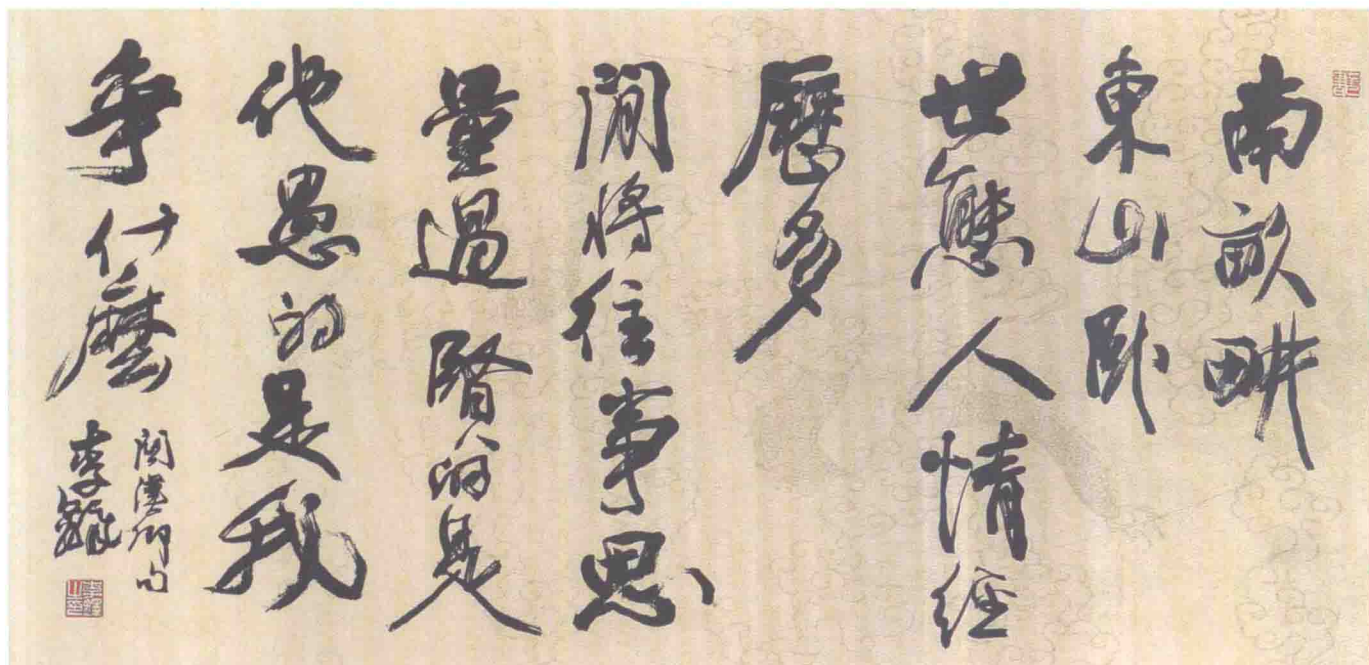 南畝畊
東山卧
世態人情經
歷多
閒將往事思
量過賢的是
他愚的是我
爭什麼
關漢卿句
李鐸